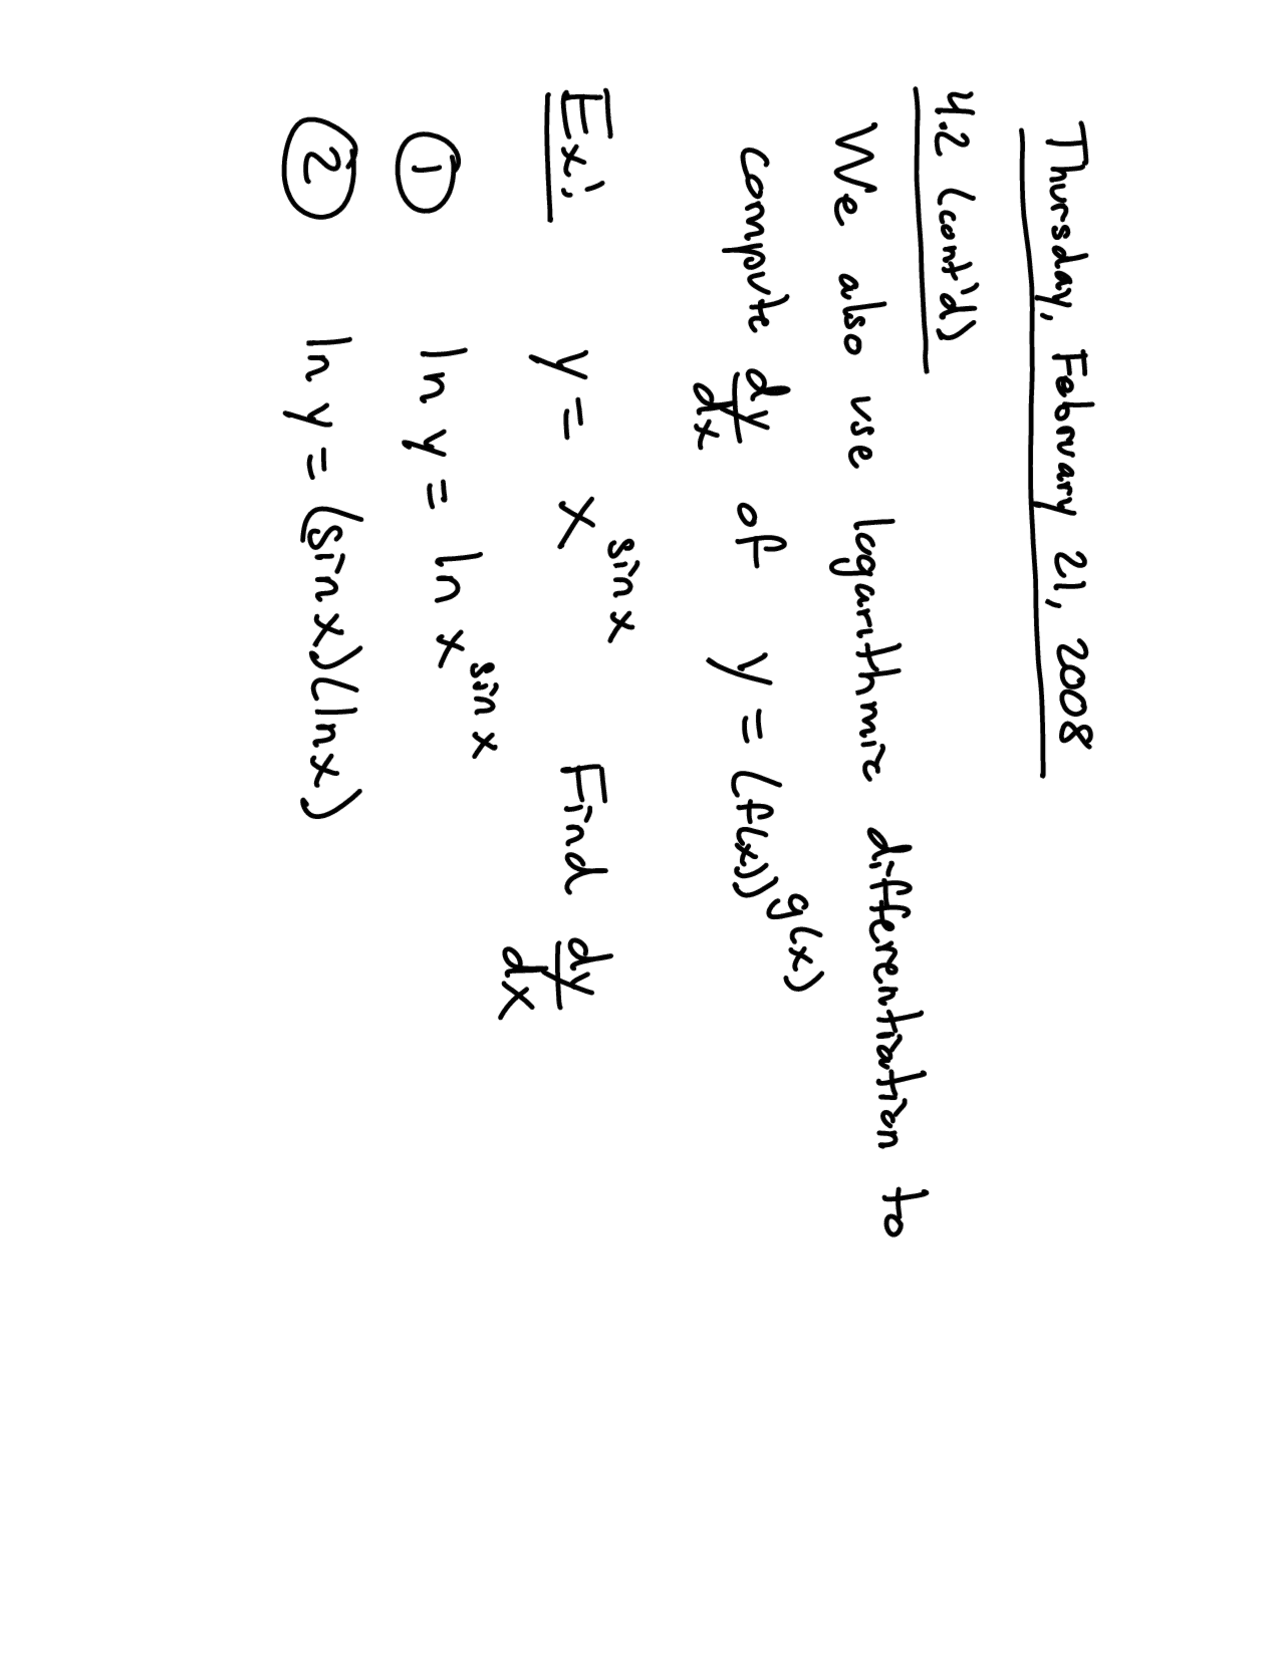 Thursday, February 21, 2008
4.2 (cont'd)
We also use logarithmic differentiation to
compute dy/dx of y = (f(x))^g(x)
Ex: y = x^sin x Find dy/dx
① ln y = ln x^sin x
② ln y = (sin x)(ln x)